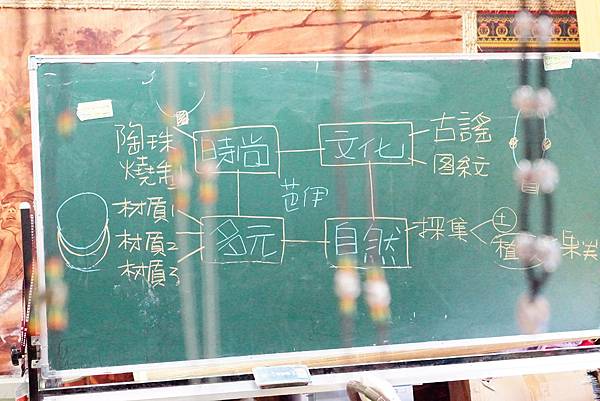 陶珠
燒製
時尚
文化
古謠
圖紋
芭伊
材質1
材質2
材質3
多元
自然
採集
土
植
果